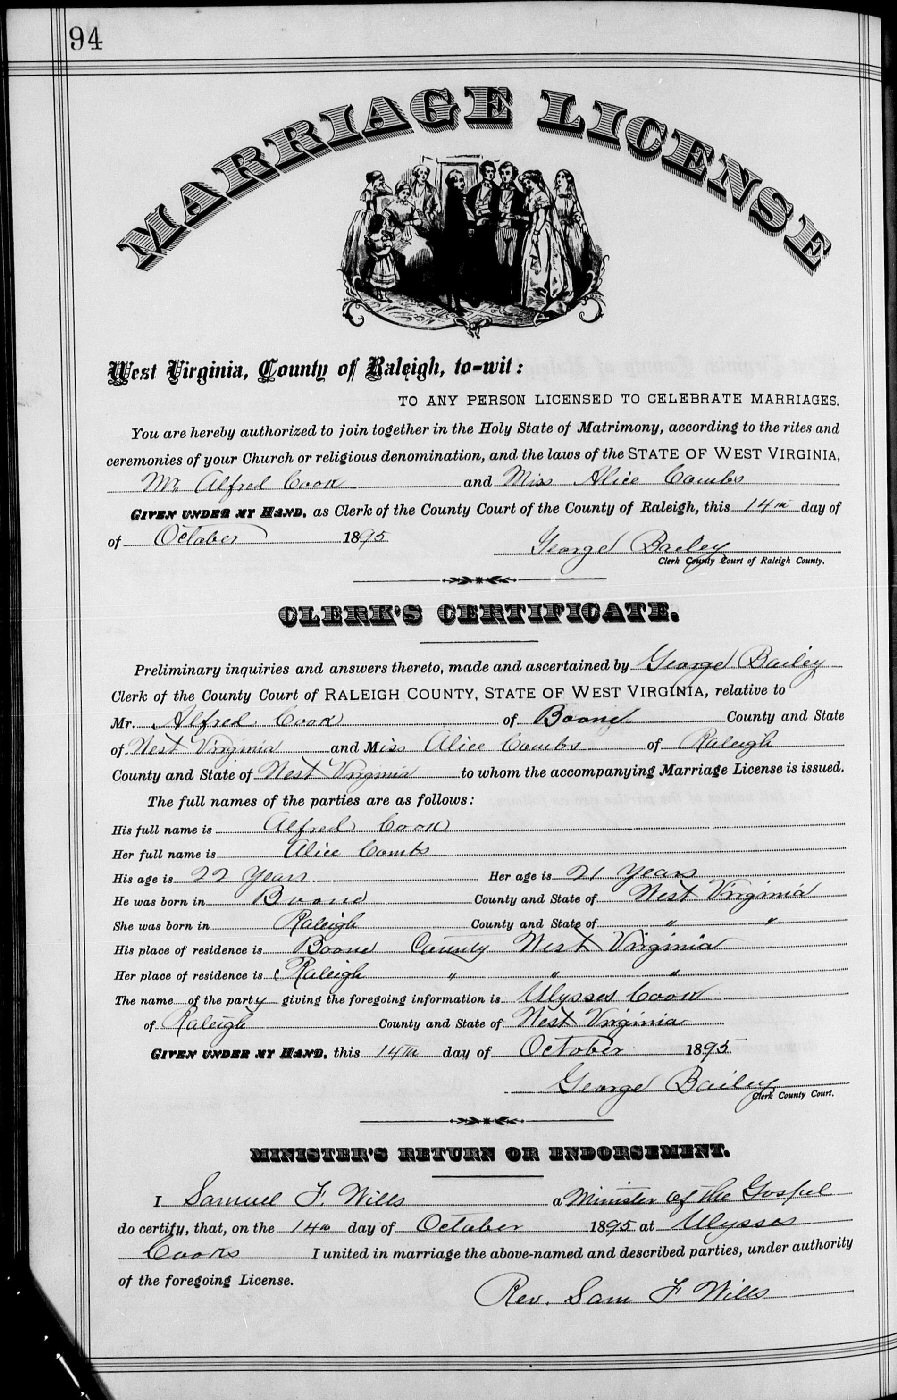 94
MARRIAGE LICENSE
West Virginia, County of Raleigh, to-wit:
TO ANY PERSON LICENSED TO CELEBRATE MARRIAGES.
You are hereby authorized to join together in the Holy State of Matrimony, according to the rites and
ceremonies of your Church or religious denomination, and the laws of the STATE OF WEST VIRGINIA,
Mr. Alfred Cook and Miss Alice Combs
GIVEN UNDER MY HAND, as Clerk of the County Court of the County of Raleigh, this 14th day of
of October 1895
George Bailey
Clerk County Court of Raleigh County.
CLERK'S CERTIFICATE.
Preliminary inquiries and answers thereto, made and ascertained by George Bailey
Clerk of the County Court of RALEIGH COUNTY, STATE OF WEST VIRGINIA, relative to
Mr. Alfred Cook of Boone County and State
of West Virginia and Miss Alice Combs of Raleigh
County and State of West Virginia to whom the accompanying Marriage License is issued.
The full names of the parties are as follows:
His full name is Alfred Cook
Her full name is Alice Combs
His age is 22 Years Her age is 21 Years
He was born in Boone County and State of West Virginia
She was born in Raleigh County and State of " "
His place of residence is Boone County West Virginia
Her place of residence is Raleigh " " "
The name of the party giving the foregoing information is Ulysses Cook
of Raleigh County and State of West Virginia
GIVEN UNDER MY HAND, this 14th day of October 1895
George Bailey
Clerk County Court.
MINISTER'S RETURN OR ENDORSEMENT.
I Samuel F. Wills a Minister of the Gospel
do certify, that, on the 14th day of October 1895 at Ulysses
Cooks I united in marriage the above-named and described parties, under authority
of the foregoing License.
Rev. Sam F Wills